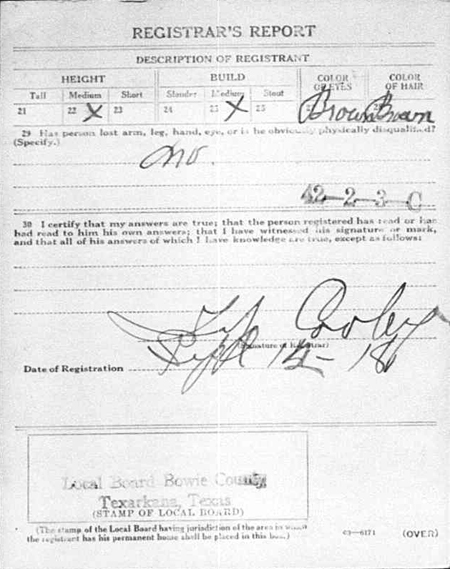 REGISTRAR'S REPORT
DESCRIPTION OF REGISTRANT
HEIGHT BUILD COLOR OF EYES COLOR OF HAIR
Tall Medium Short Slender Medium Stout
21 22 X 23 24 25 X 26 Brown Brown
29 Has person lost arm, leg, hand, eye, or is he obviously physically disqualified?
(Specify.)
no.
42-2-3 C
30 I certify that my answers are true; that the person registered has read or has
had read to him his own answers; that I have witnessed his signature or mark,
and that all of his answers of which I have knowledge are true, except as follows:
Cooley
(Signature of Registrar)
Date of Registration Sept 12-18
Local Board Bowie County
Texarkana, Texas
(STAMP OF LOCAL BOARD)
(The stamp of the Local Board having jurisdiction of the area in which
the registrant has his permanent home shall be placed in this box.)
03-6171 (OVER)